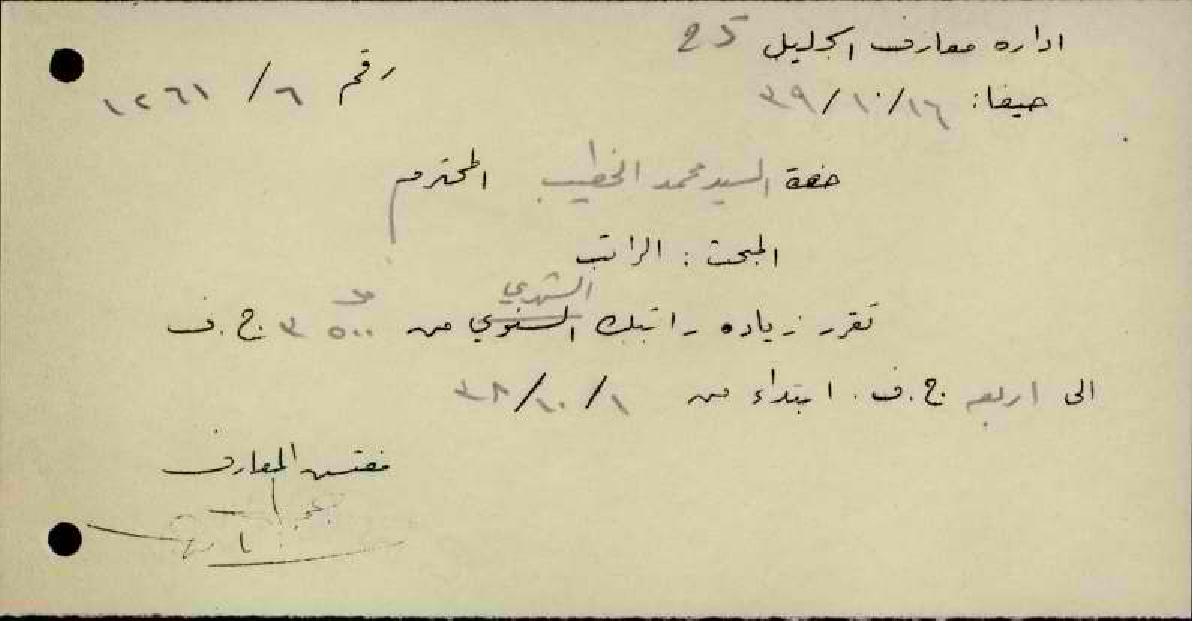 اداره معارف الجليل 25
حيفا: ١٦/١٠/٣٩
رقم ٦/ ١٢٦١
حضرة السيد محمد الخطيب المحترم
المبحث: الراتب
الشهري
تقرر زياده راتبك السنوي من ٥٠٠ ٣ ج.ف
الى اربعه ج.ف. ابتداء من ١/١٠/٣٨
مفتش المعارف